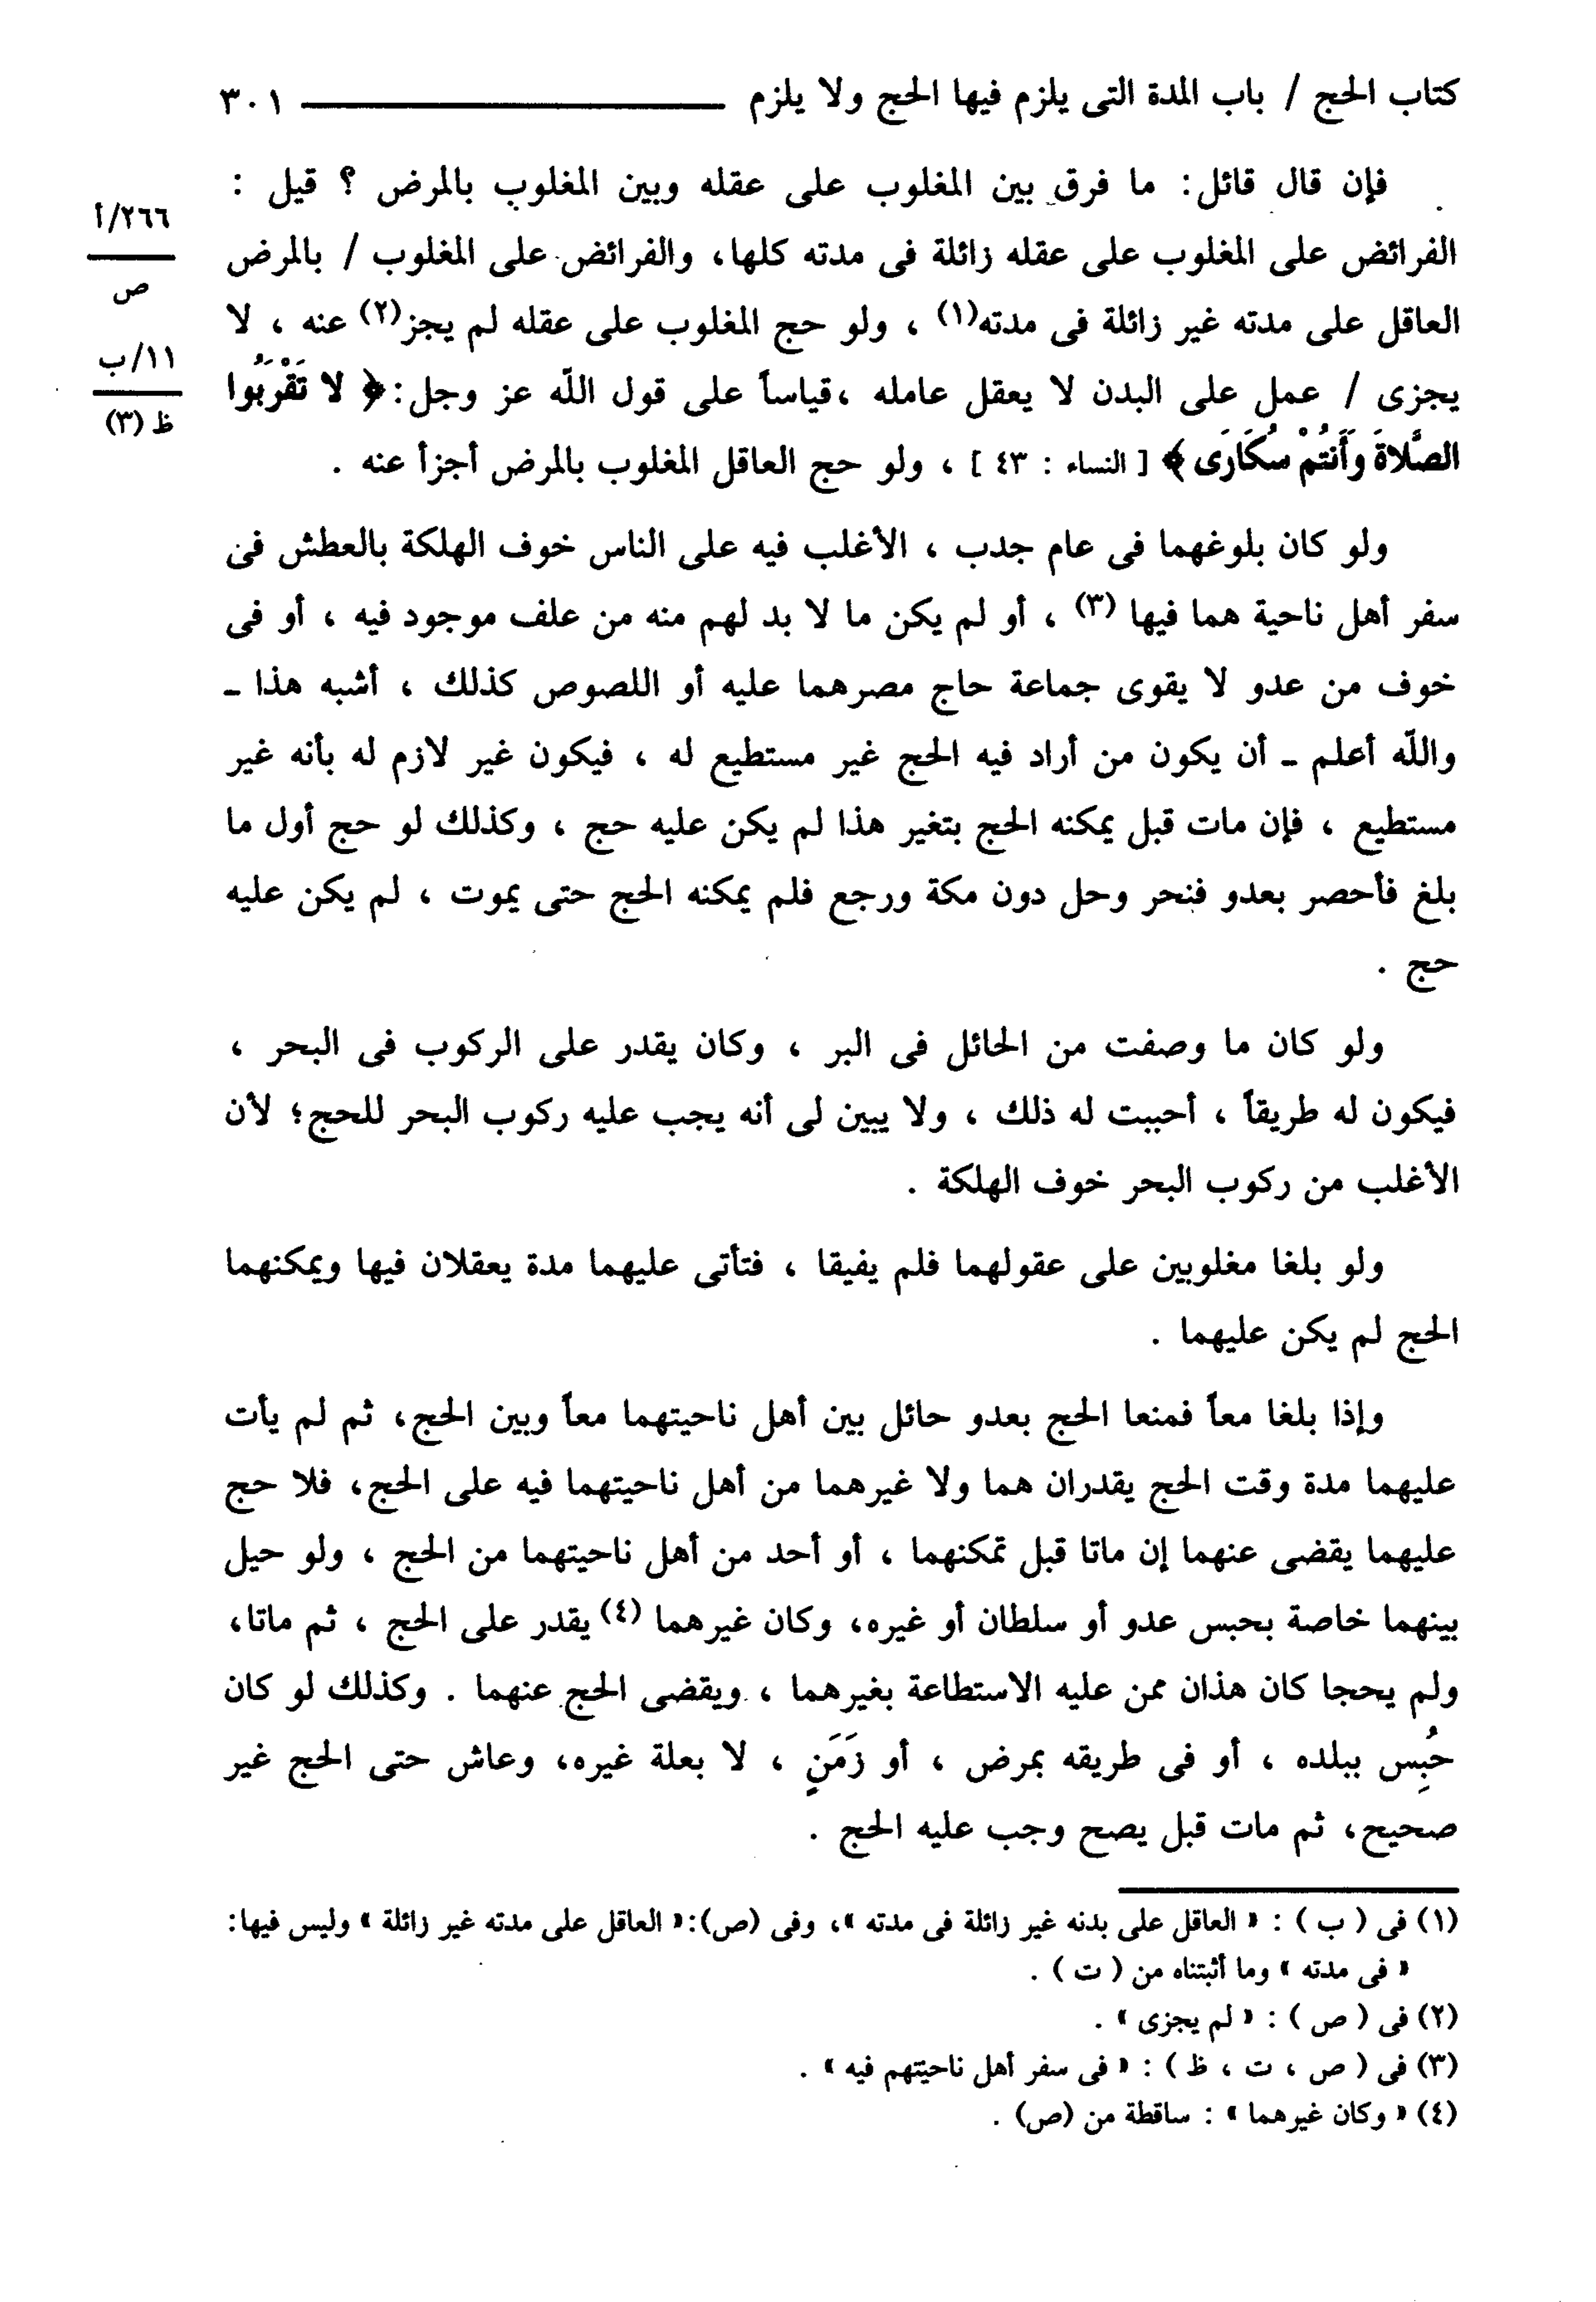 كتاب الحج / باب المدة التى يلزم فيها الحج ولا يلزم ــــــــــــ ٣٠١
فإن قال قائل: ما فرق بين المغلوب على عقله وبين المغلوب بالمرض ؟ قيل :
الفرائض على المغلوب على عقله زائلة فى مدته كلها، والفرائض على المغلوب / بالمرض
العاقل على مدته غير زائلة فى مدته(١) ، ولو حج المغلوب على عقله لم يجز(٢) عنه ، لا
يجزى / عمل على البدن لا يعقل عامله ،قياساً على قول الله عز وجل:﴿ لا تَقْرَبُوا
الصَّلاةَ وَأَنتُمْ سُكَارَى ﴾ [ النساء : ٤٣ ] ، ولو حج العاقل المغلوب بالمرض أجزأ عنه .
٢٦٦/أ
ص
١١/ب
ظ (٣)
ولو كان بلوغهما فى عام جدب ، الأغلب فيه على الناس خوف الهلكة بالعطش فى
سفر أهل ناحية هما فيها (٣) ، أو لم يكن ما لا بد لهم منه من علف موجود فيه ، أو فى
خوف من عدو لا يقوى جماعة حاج مصرهما عليه أو اللصوص كذلك ، أشبه هذا ـ
والله أعلم ـ أن يكون من أراد فيه الحج غير مستطيع له ، فيكون غير لازم له بأنه غير
مستطيع ، فإن مات قبل يمكنه الحج بتغير هذا لم يكن عليه حج ، وكذلك لو حج أول ما
بلغ فأحصر بعدو فنحر وحل دون مكة ورجع فلم يمكنه الحج حتى يموت ، لم يكن عليه
حج .
ولو كان ما وصفت من الحائل فى البر ، وكان يقدر على الركوب فى البحر ،
فيكون له طريقاً ، أحببت له ذلك ، ولا يبين لى أنه يجب عليه ركوب البحر للحج؛ لأن
الأغلب من ركوب البحر خوف الهلكة .
ولو بلغا مغلوبين على عقولهما فلم يفيقا ، فتأتى عليهما مدة يعقلان فيها ويمكنهما
الحج لم يكن عليهما .
وإذا بلغا معاً فمنعا الحج بعدو حائل بين أهل ناحيتهما معاً وبين الحج، ثم لم يأت
عليهما مدة وقت الحج يقدران هما ولا غيرهما من أهل ناحيتهما فيه على الحج، فلا حج
عليهما يقضى عنهما إن ماتا قبل تمكنهما ، أو أحد من أهل ناحيتهما من الحج ، ولو حيل
بينهما خاصة بحبس عدو أو سلطان أو غيره، وكان غيرهما (٤) يقدر على الحج ، ثم ماتا،
ولم يحجا كان هذان ممن عليه الاستطاعة بغيرهما ، ويقضى الحج عنهما . وكذلك لو كان
حُبِس ببلده ، أو فى طريقه بمرض ، أو زَمَنٍ ، لا بعلة غيره، وعاش حتى الحج غير
صحيح، ثم مات قبل يصح وجب عليه الحج .
(١) فى ( ب ) : « العاقل على بدنه غير زائلة فى مدته »، وفى (ص):« العاقل على مدته غير زائلة » وليس فيها:
« فى مدته » وما أثبتناه من ( ت ) .
(٢) فى ( ص ) : « لم يجزى » .
(٣) فى ( ص ، ت ، ظ ) : « فى سفر أهل ناحيتهم فيه » .
(٤) « وكان غيرهما » : ساقطة من (ص) .